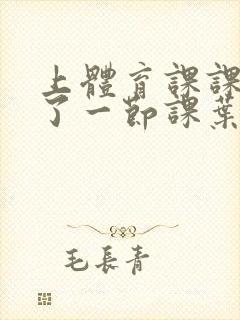 上體育課課
了一節課葉
毛長青